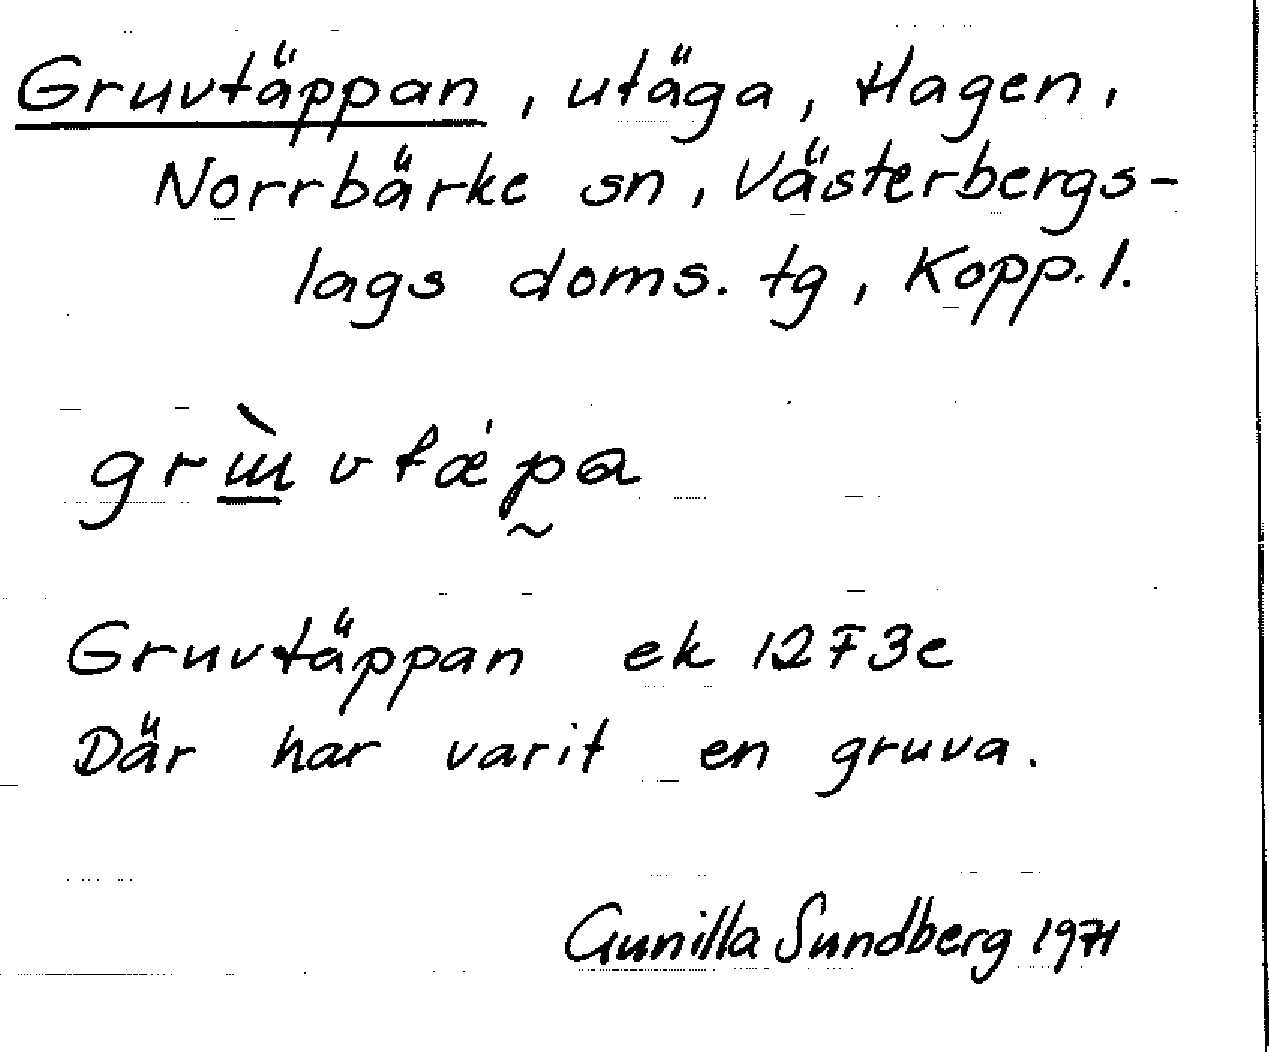 Gruvtäppan, utäga, Hagen,
Norrbärke sn, Västerbergs-
lags doms. tg, Kopp. l.
Gruvtäppan ek 12F3e
Där har varit en gruva.
Gunilla Sundberg 1971